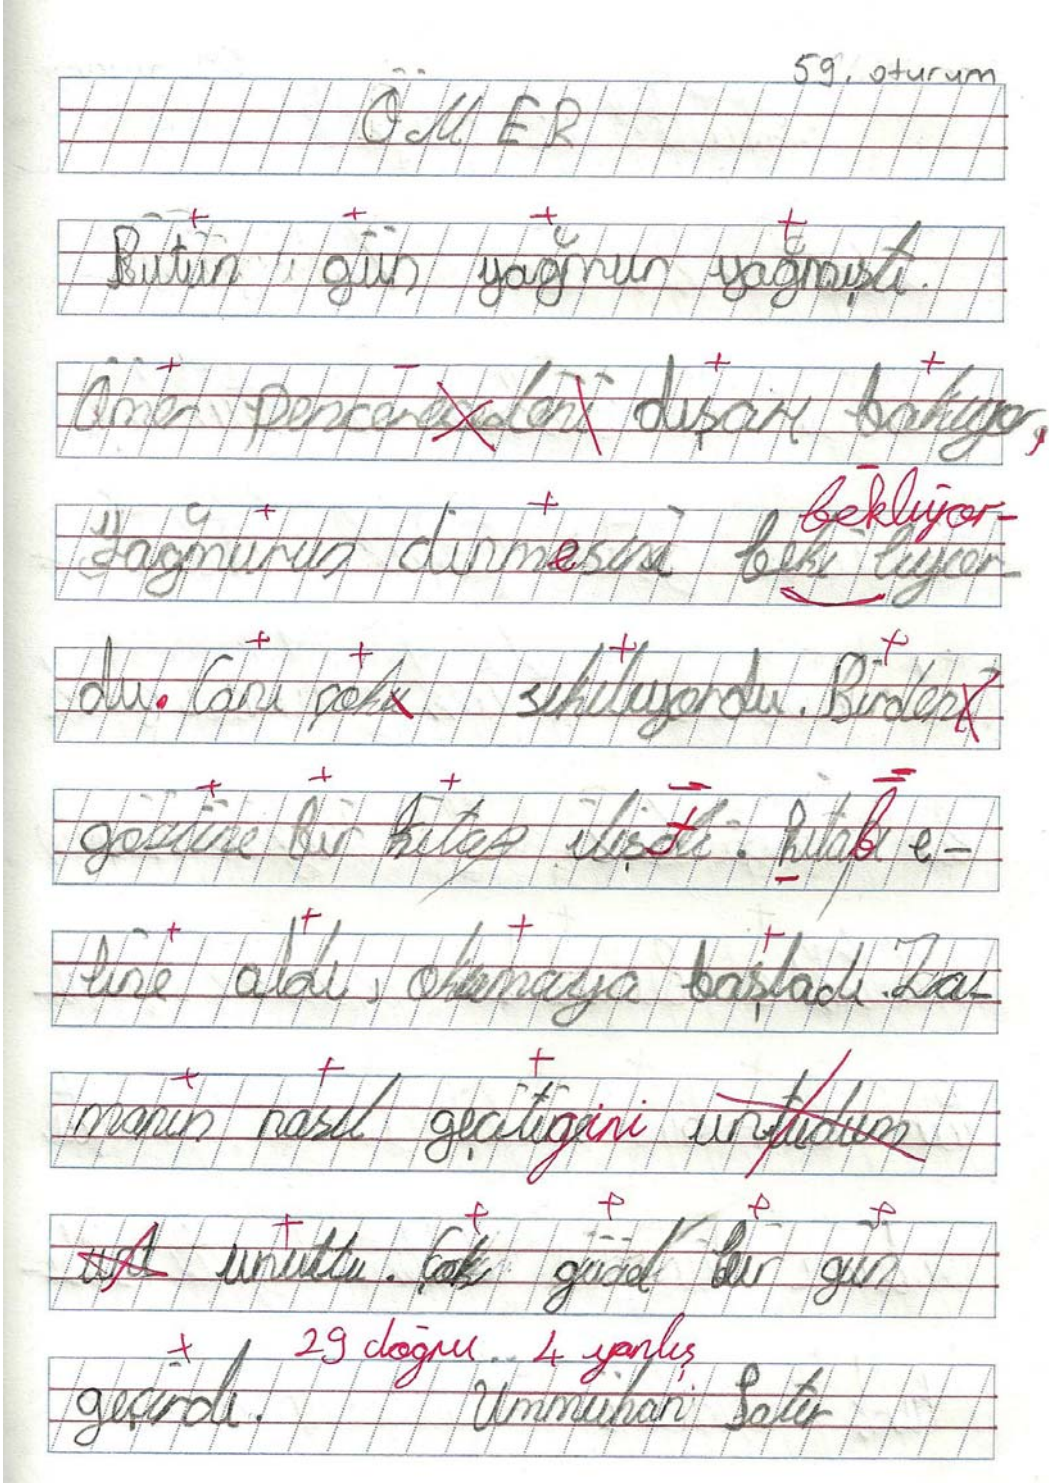 59. oturum
ÖMER
Bütün gün yağmur yağmıştı.
Ömer dışarı bakıyor,
bekliyor-
Yağmurun dinmesini beki liyor-
du. Canı çok sıkılıyordu. Birden
gözüne bir kitap ilişti. kitabı e-
line aldı, okumaya başladı. Za-
manın nasıl geçitigini untudum
unt unuttu. Çok güzel bir gün
29 doğru 4 yanlış
geçirdi. Ummühan Satır